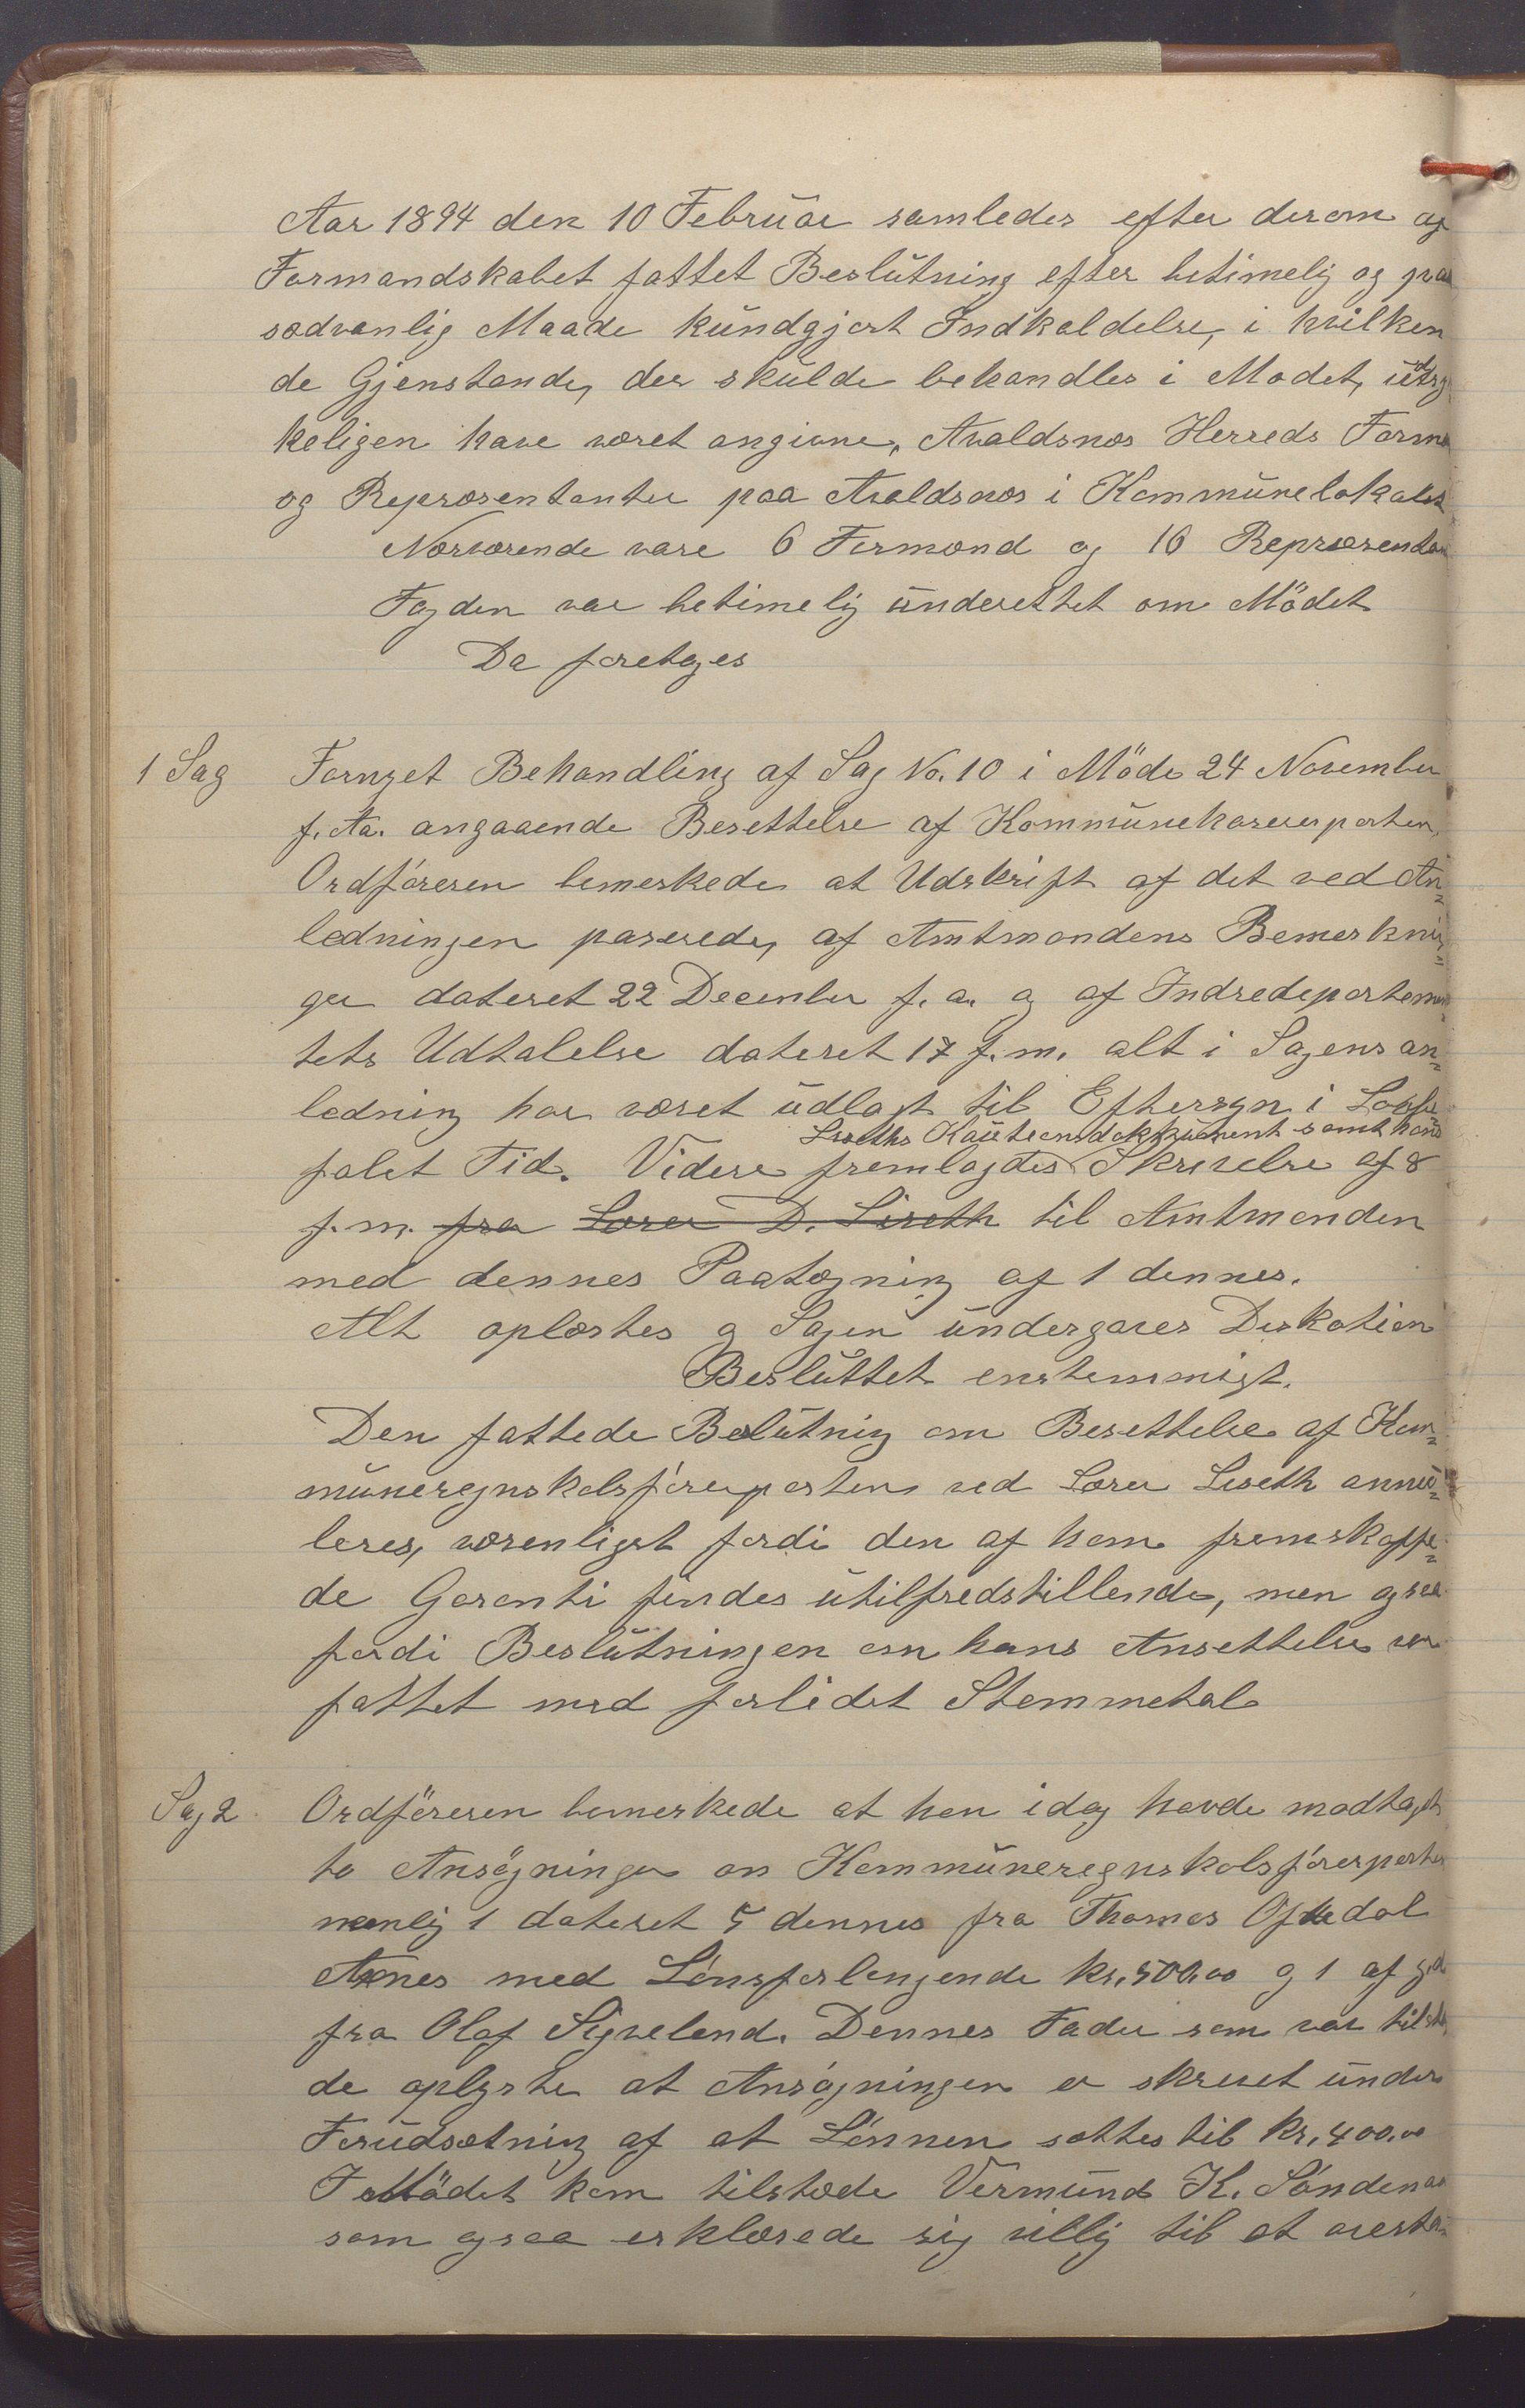 Aar 1894 den 10 Februar samledes efter derom af
Formandskabet fattet Beslutning efter betimelig og paa
sædvanlig Maade kundgjort Indkaldelse, i hvilken
de Gjenstande, der skulde behandles i Mødet, udtry
keligen have været angivne, Avaldsnæs Herreds Form
og Repræsentanter paa Avaldsnæs i Kommunelokalet
Nærværende vare 6 Formænd og 16 Repræsentan
Fogden var betimelig underettet om Mødet
Da foretoges
1 Sag Fornyet Behandling af Sag No. 10 i Møde 24 November
f. Aa. angaaende Besettelse af Kommunekassererposten.
Ordføreren bemerkede at Udskrift af det ved An-
ledningen passerede, af Amtmandens Bemerknin-
ger dateret 22 December f. a. og af Indredepartemen-
tets Udtalelse dateret 17 f. m. alt i Sagens an-
ledning har været udlagt til Eftersyn i Lovbe-
Liseths Kautionsdokkument samt hans
falet Tid. Videre fremlagdes Skrivelse af 8
f. m. fra Lærer D. Liseth til Amtmanden
med dennes Paategning af 1 dennes.
Alt oplæstes og Sagen undergaves Diskotion
Besluttet enstemmigt.
Den fattede Beslutning om Besettelse af Kom-
muneregnskabsførerposten ved Lærer Liseth annu-
leres, væsenligst fordi den af ham fremskaffe-
de Garanti findes utilfredstillende, men ogsaa
fordi Beslutningen om hans Ansettelse var
fattet med forlidet Stemmetal
Sag 2 Ordføreren bemerkede at han idag havde modtaget
to Ansøgninger om Kommuneregnskabsførerposten
nemlig 1 dateret 5 dennes fra Thomas Oftedal
med Lønsforlangende kr. 500,00 og 1 af g.d.
fra Olaf Sigveland. Dennes Fader som var tilste
de oplyste at Ansøgningen er skrevet under
Forudsætning af at Lønnen sættes til kr. 400,00
I Mødet kom tilstæde Vermund K. Søndenaa
som ogsaa erklærede sig villig til at overta-